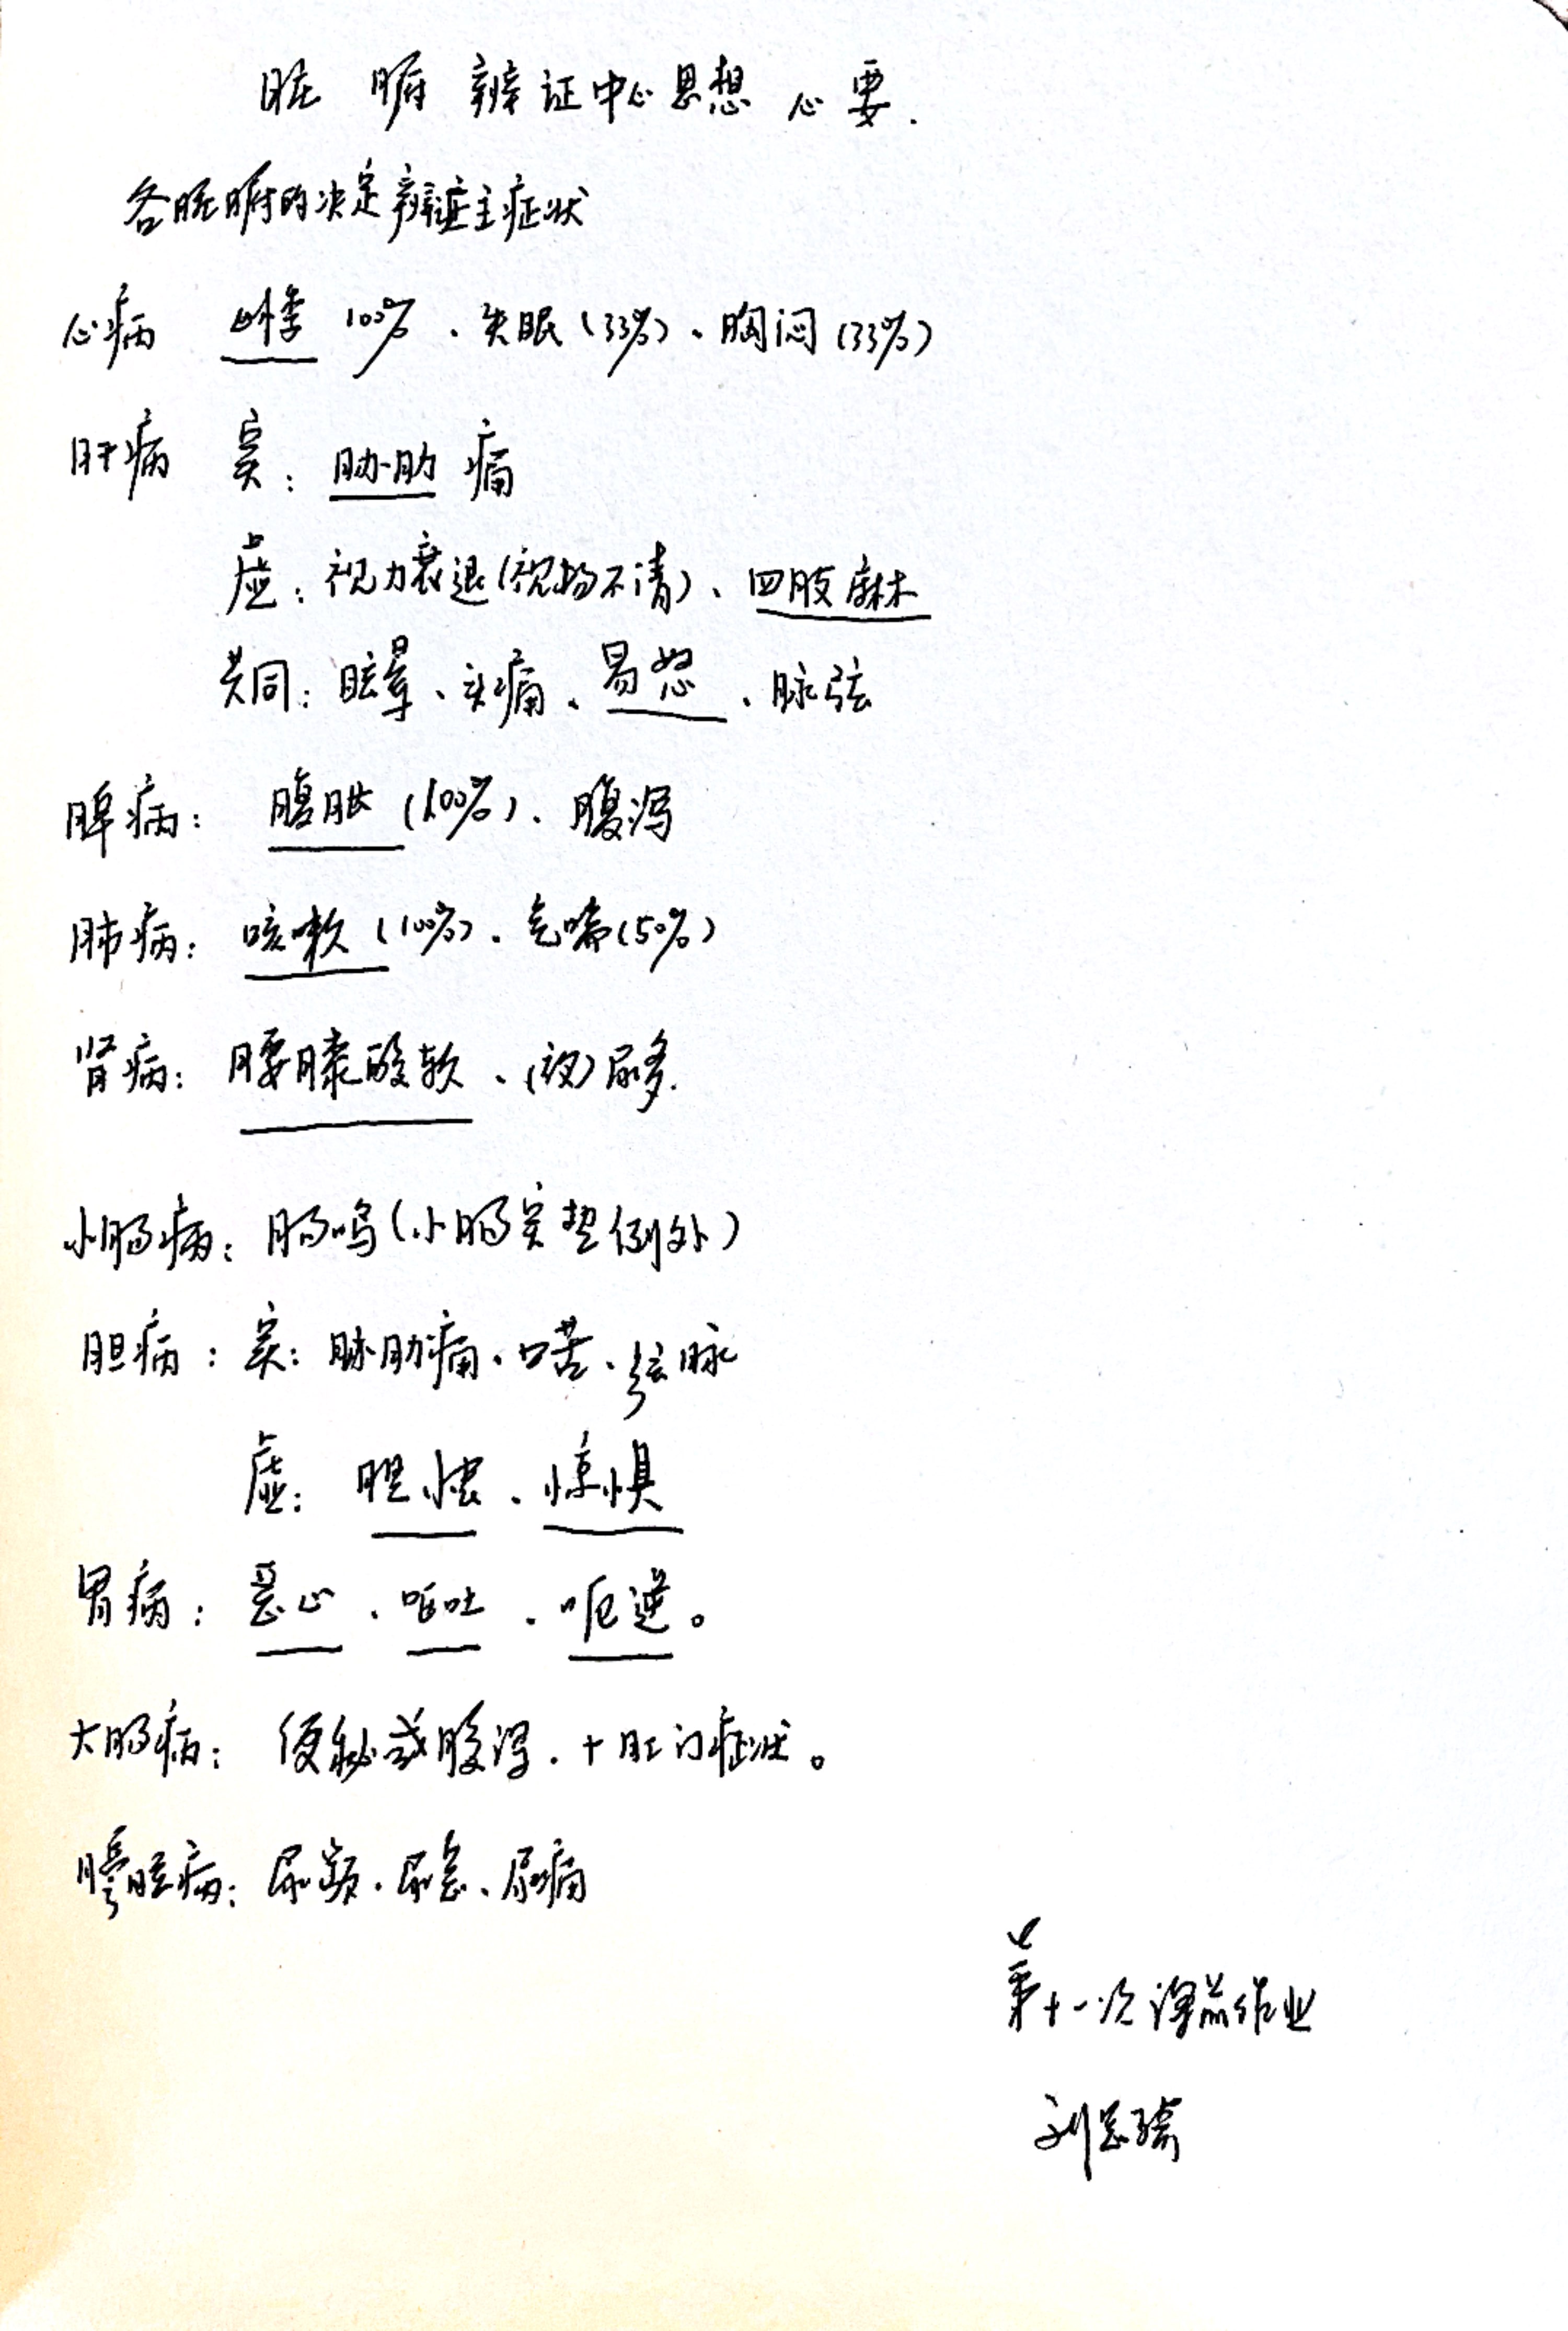 脏 腑 辨证中心思想 心要.
各脏腑的决定辨证主症状
心病 心悸 100%、失眠(33%)、胸闷(33%)
肝病 实: 胁肋 痛
虚: 视力衰退(视物不清)、四肢麻木
共同: 眩晕、头痛、易怒、脉弦
脾病: 腹胀(100%)、腹泻
肺病: 咳嗽(100%)、气喘(50%)
肾病: 腰膝酸软、(夜)尿多.
小肠病: 肠鸣(小肠实热例外)
胆病: 实: 胁肋痛、口苦、弦脉
虚: 胆怯、惊惧
胃病: 恶心、呕吐、呃逆。
大肠病: 便秘或腹泻. + 肛门症状。
膀胱病: 尿频、尿急、尿痛
第十一次课前作业
刘